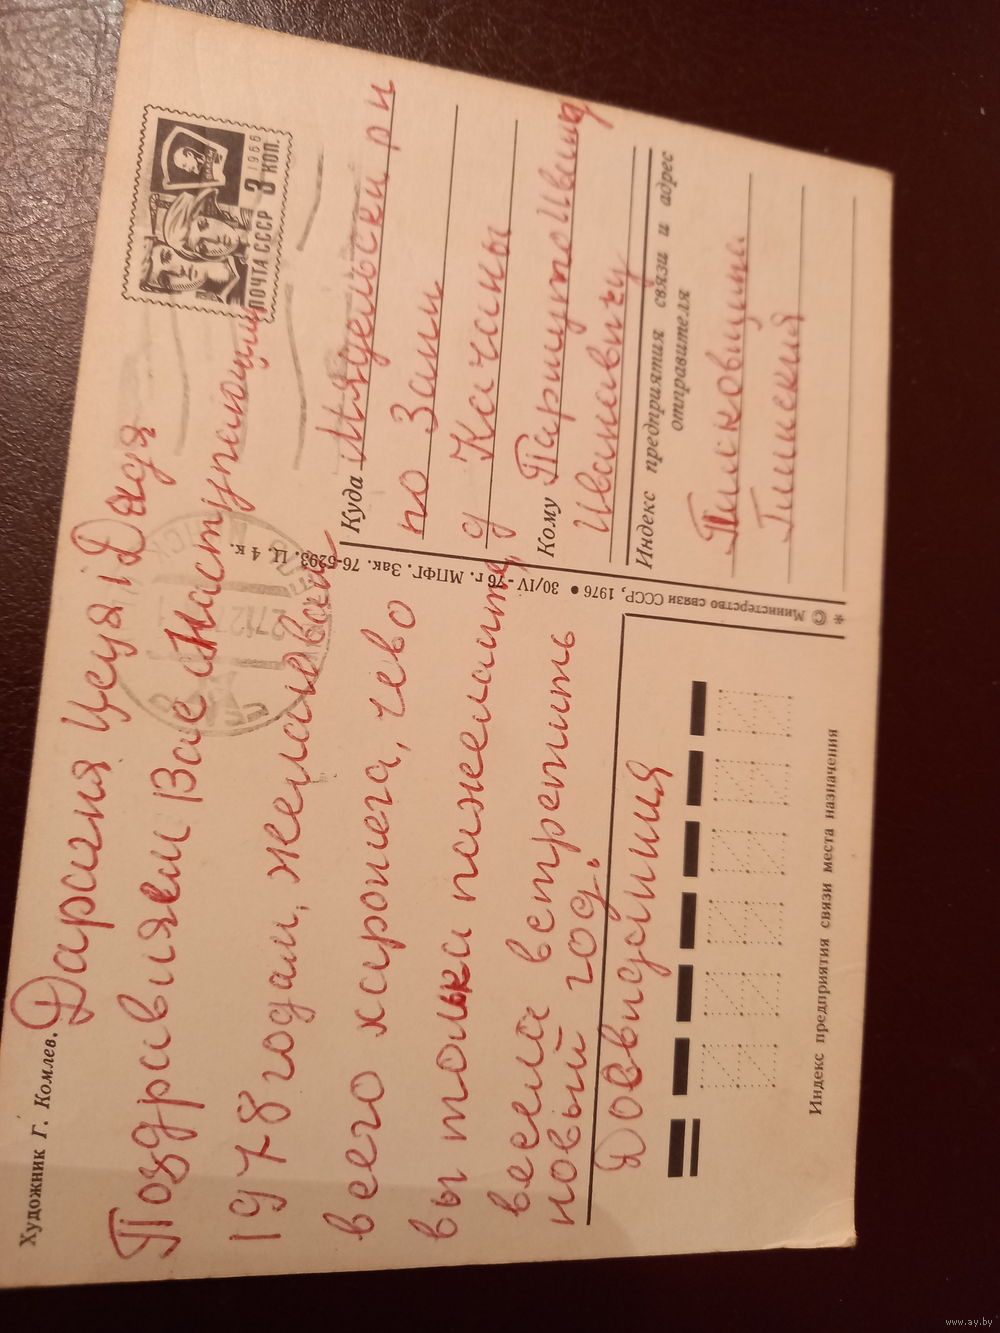 Художник Г. Комлев.
Дарагия Цеця і Дядя
Поздравияем Вас Снаступающим
1978 годам, желаим вам
всего харошега, чево
вы только пажелаите,
весело встретить
новый год.
Довидания
ПОЧТА СССР
1966
3 КОП.
Куда Мядельски рн
по Зани
д Качаны
Кому Паршуто
Ивановичу
Индекс предприятия связи и адрес
отправителя
Пильковщина
© Министерство связи СССР, 1976 • 30/IV - 76 г. МПФГ. Зак. 76-5293. Ц. 4 к.
Индекс предприятия связи места назначения
www.ay.by